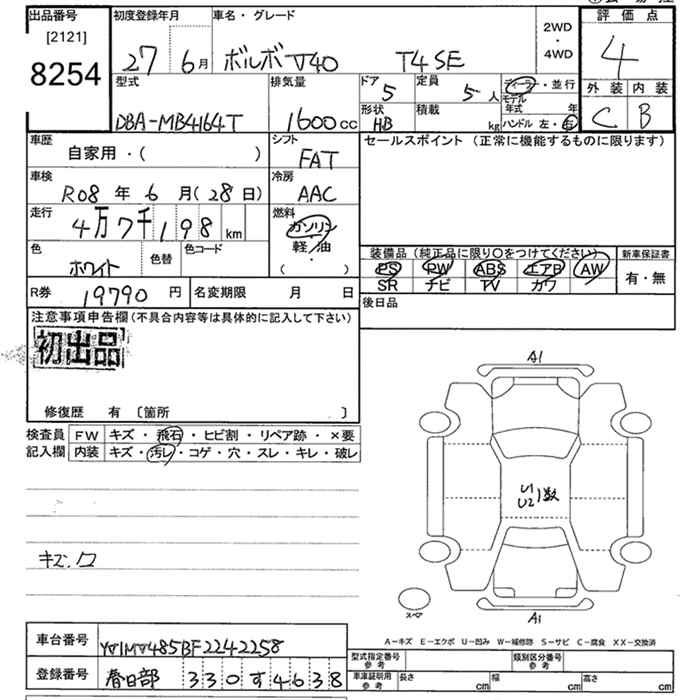 出品番号
[2121]
8254
初度登録年月
27 6月
車名・グレード
ボルボ V40 T4 SE
2WD
・
4WD
評価点
4
外装 内装
C B
型式
DBA-MB4164T
排気量
1600cc
ドア
5
定員
5人
形状
HB
積載
kg
ディーラー・並行
モデル年式 年
ハンドル 左・右
車歴
自家用・( )
シフト
FAT
セールスポイント (正常に機能するものに限ります)
車検
R08年 6月(28日)
冷房
AAC
走行
4万7千198km
燃料
ガソリン
軽/油
・
( )
色
ホワイト
色替
色コード
装備品 (純正品に限り〇をつけてください)
PS PW ABS エアB AW
SR ナビ TV カワ
新車保証書
有・無
R券
19790円
名変期限 月 日
後日品
注意事項申告欄(不具合内容等は具体的に記入して下さい)
初出品
修復歴 有 〔箇所 〕
検査員 FW キズ・飛石・ヒビ割・リペア跡・×要
記入欄 内装 キズ・汚レ・コゲ・穴・スレ・キレ・破レ
A1
U1
U2 1数
キズ.ワ
スペア
A1
A-キズ E-エクボ U-凹み W-補修跡 S-サビ C-腐食 XX-交換済
車台番号
YV1MV485BF2242258
登録番号
春日部 330す4638
型式指定番号
参考
類別区分番号
参考
車庫証明用
参考
長さ cm 幅 cm 高さ cm